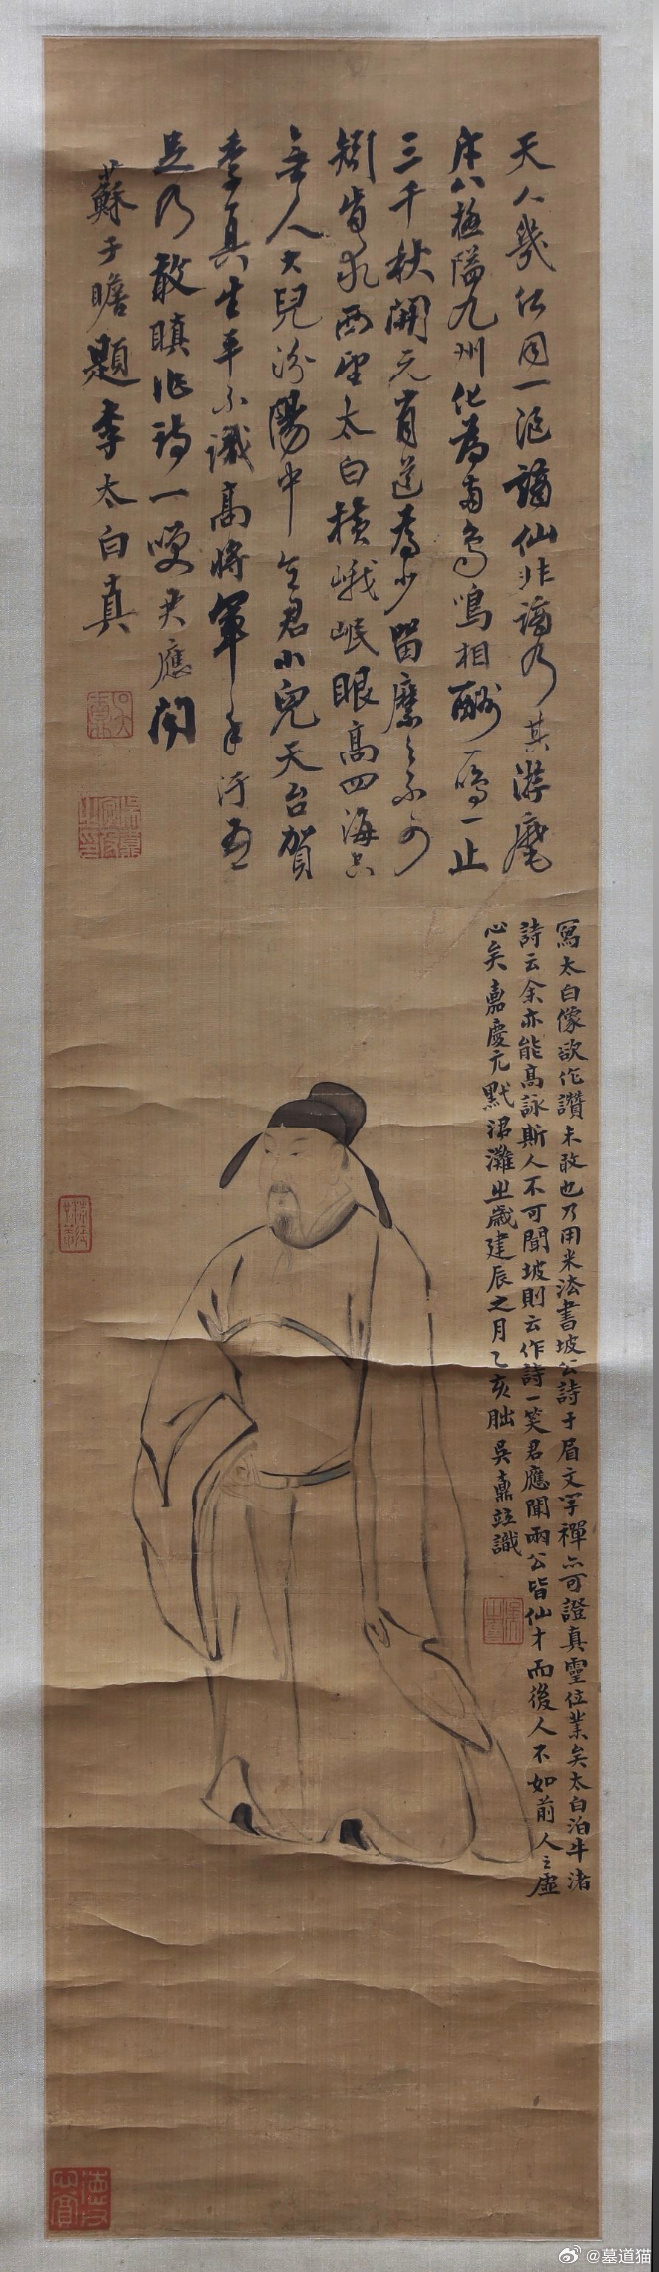 天人幾何同一漚謫仙非謫乃其游麾
斥八極隘九州化為兩鳥鳴相酬一鳴一止
三千秋開元有道為少留縻之不可
矧肯求西望太白橫峨岷眼高四海空
無人大兒汾陽中令君小兒天台賀
季真生平不識高將軍手污吾
足乃敢瞋作詩一笑君應聞
蘇子瞻題李太白真
吳鼒
寫太白像欲作讚未敢也乃用米法書坡公詩于眉文字禪亦可證真靈位業矣太白泊牛渚
詩云余亦能高詠斯人不可聞坡則云作詩一笑君應聞兩公皆仙才而後人不如前人之虛
心矣嘉慶元黓涒灘之歲建辰之月乙亥朏吳鼒竝識
@墓道猫